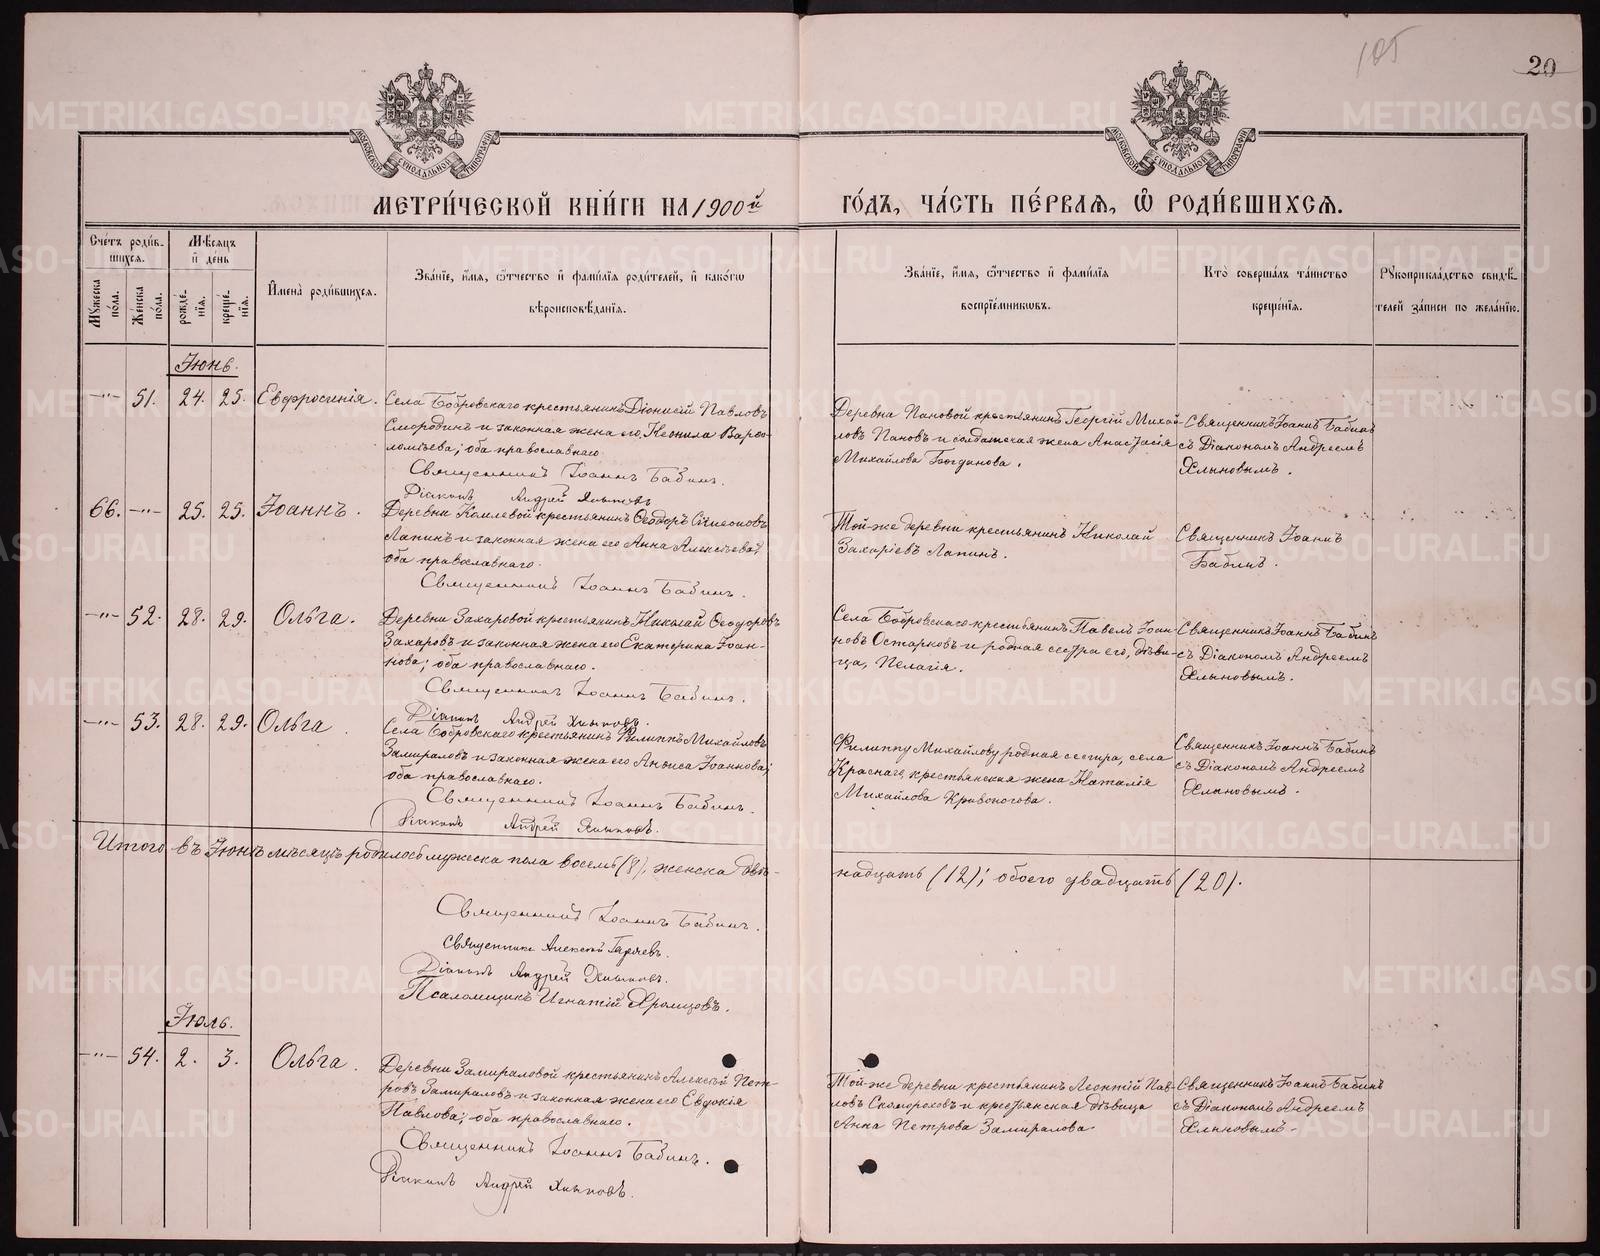 105
20
МЕТРИ́ЧЕСКОЙ КНИ́ГИ НА 1900й
ГО́ДЪ, ЧА́СТЬ ПЕ́РВАЯ, Ѽ РОДИ́ВШИХСЯ.
Сче́тъ роди́в-
шихся.
Мꙋ́жеска
по́ла.
Же́нска
по́ла.
Мѣ́сяцъ
и҆ день
рожде́-
нїя.
креще́-
нїя.
И҆мена̀ роди́вшихся.
Зва́нїе, и҆́мя, ѻ҆́тчество и҆ фами́лїя роди́телей, и҆ како́гѡ
вѣроисповѣ́данїя.
Зва́нїе, и҆́мя, ѻ҆́тчество и҆ фами́лїя
воспрїе́мникѡвъ.
Кто̀ соверша́лъ та́инство
креще́нїя.
Рꙋкоприкла́дство свидѣ́-
телей за́писи по жела́нїю.
Іюнь.
—"— 51. 24. 25. Евфросинія.
Села Бобровскаго крестьянинъ Діонисій Павловъ
Смородинъ и законная жена его, Неонила Варфо-
ломѣева; оба православнаго
Священникъ Іоаннъ Бабинъ.
Діаконъ Андрей Хлыновъ
Деревни Пановой крестьянинъ Георгій Михай-
ловъ Пановъ и солдатская жена Анастасія
Михайлова Богданова.
Священникъ Іоаннъ Бабинъ
съ Діакономъ Андреемъ
Хлыновымъ.
66. —"— 25. 25. Іоаннъ.
Деревни Комлевой крестьянинъ Ѳеодоръ Сѵмеоновъ
Лапинъ и законная жена его Анна Алексѣева;
оба православнаго.
Священникъ Іоаннъ Бабинъ.
Той-же деревни крестьянинъ Николай
Захаріевъ Лапинъ.
Священникъ Іоаннъ
Бабинъ.
—"— 52. 28. 29. Ольга.
Деревни Захаровой крестьянинъ Николай Ѳеодоровъ
Захаровъ и законная жена его Екатерина Іоан-
нова; оба православнаго.
Священникъ Іоаннъ Бабинъ.
Діаконъ Андрей Хлыновъ.
Села Бобровскаго крестьянинъ Павелъ Іоан-
новъ Остарковъ и родная сестра его, дѣви-
ца, Пелагія.
Священникъ Іоаннъ Бабинъ
съ Діакономъ Андреемъ
Хлыновымъ.
—"— 53. 28. 29. Ольга.
Села Бобровскаго крестьянинъ Филиппъ Михайловъ
Замираловъ и законная жена его Анѳиса Іоаннова;
оба православнаго.
Священникъ Іоаннъ Бабинъ.
Діаконъ Андрей Хлыновъ.
Филиппу Михайлову родная сестра, села
Краснаго, крестьянская жена Наталія
Михайлова Кривоногова.
Священникъ Іоаннъ Бабинъ
съ Діакономъ Андреемъ
Хлыновымъ.
Итого въ Іюнѣ мѣсяцѣ родилось мужеска пола восемь (8), женска двѣ-
надцать (12); обоего двадцать (20).
Священникъ Іоаннъ Бабинъ.
Священникъ Алексій Гаряевъ.
Діаконъ Андрей Хлыновъ.
Псаломщикъ Игнатій Хромцовъ.
Іюль.
—"— 54. 2. 3. Ольга.
Деревни Замираловой крестьянинъ Алексій Пет-
ровъ Замираловъ и законная жена его Евдокія
Павлова; оба православнаго.
Священникъ Іоаннъ Бабинъ.
Діаконъ Андрей Хлыновъ.
Той-же деревни крестьянинъ Леонтій Пав-
ловъ Скоморохов и крестьянская дѣвица
Анна Петрова Замиралова
Священникъ Іоаннъ Бабинъ
съ Діакономъ Андреемъ
Хлыновымъ.
METRIKI.GASO-URAL.RU